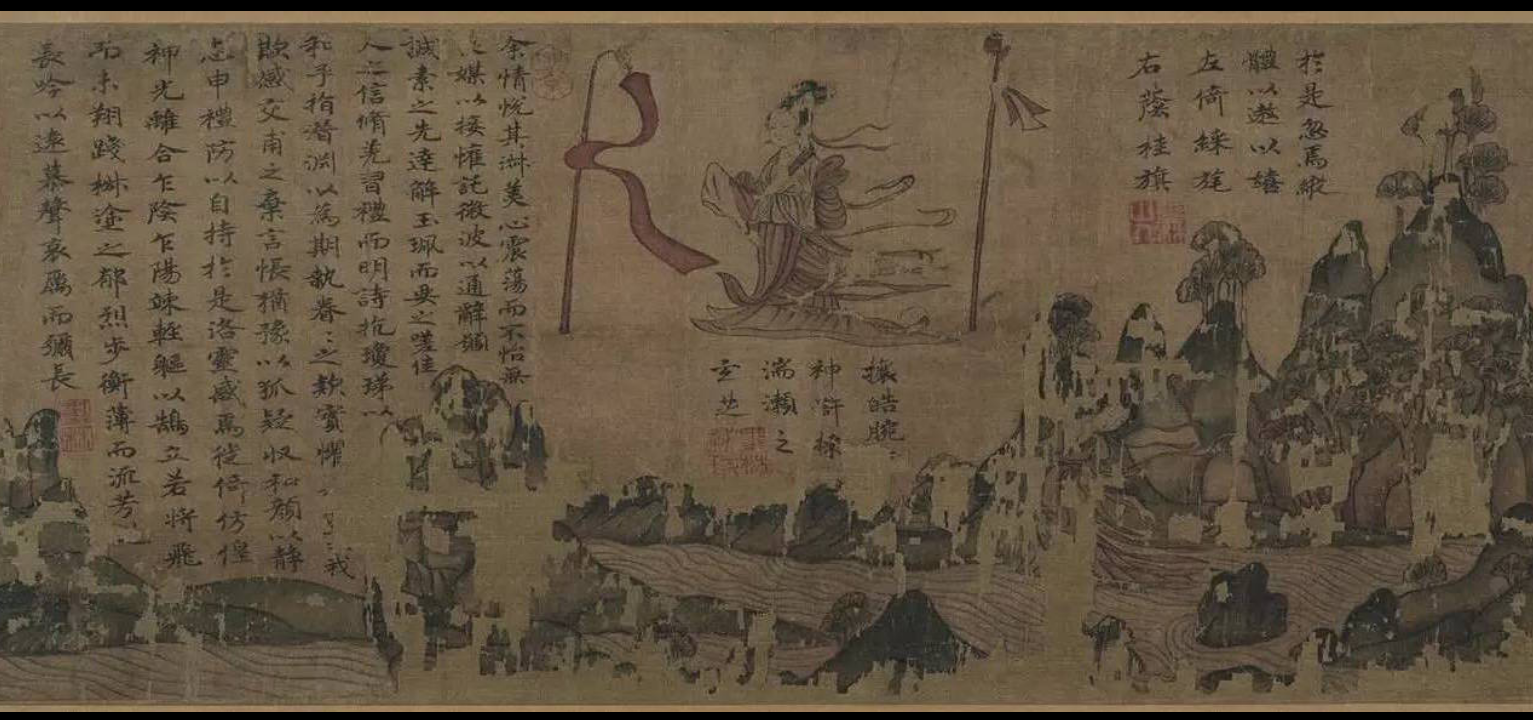 於是忽焉縱
體以遨以嬉
左倚綵旄
右蔭桂旗
攘皓腕
神滸採
湍瀨之
玄芝
余情悅其淋美心震蕩而不怡無
媒以接懽託微波以通辭願
誠素之先達解玉珮而要之嗟佳
人之信脩羌習禮而明詩抗瓊珶以
和予指潛淵以為期執眷〻之款實懼我
欺感交甫之棄言悵猶豫以狐疑收和顏以靜
志申禮防以自持於是洛靈感焉徙倚仿偟
神光離合乍陰乍陽竦輕軀以鵠立若將飛
而未翔踐椒塗之郁烈步衡薄而流芳
長吟以遠慕聲哀厲而彌長